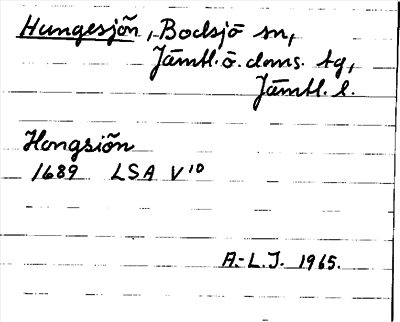 Hungesjön, Bodsjö sn,
Jämtl. ö. doms. tg,
Jämtl. l.
Hongsiön
1689 LSA V10
A.-L.J. 1965.